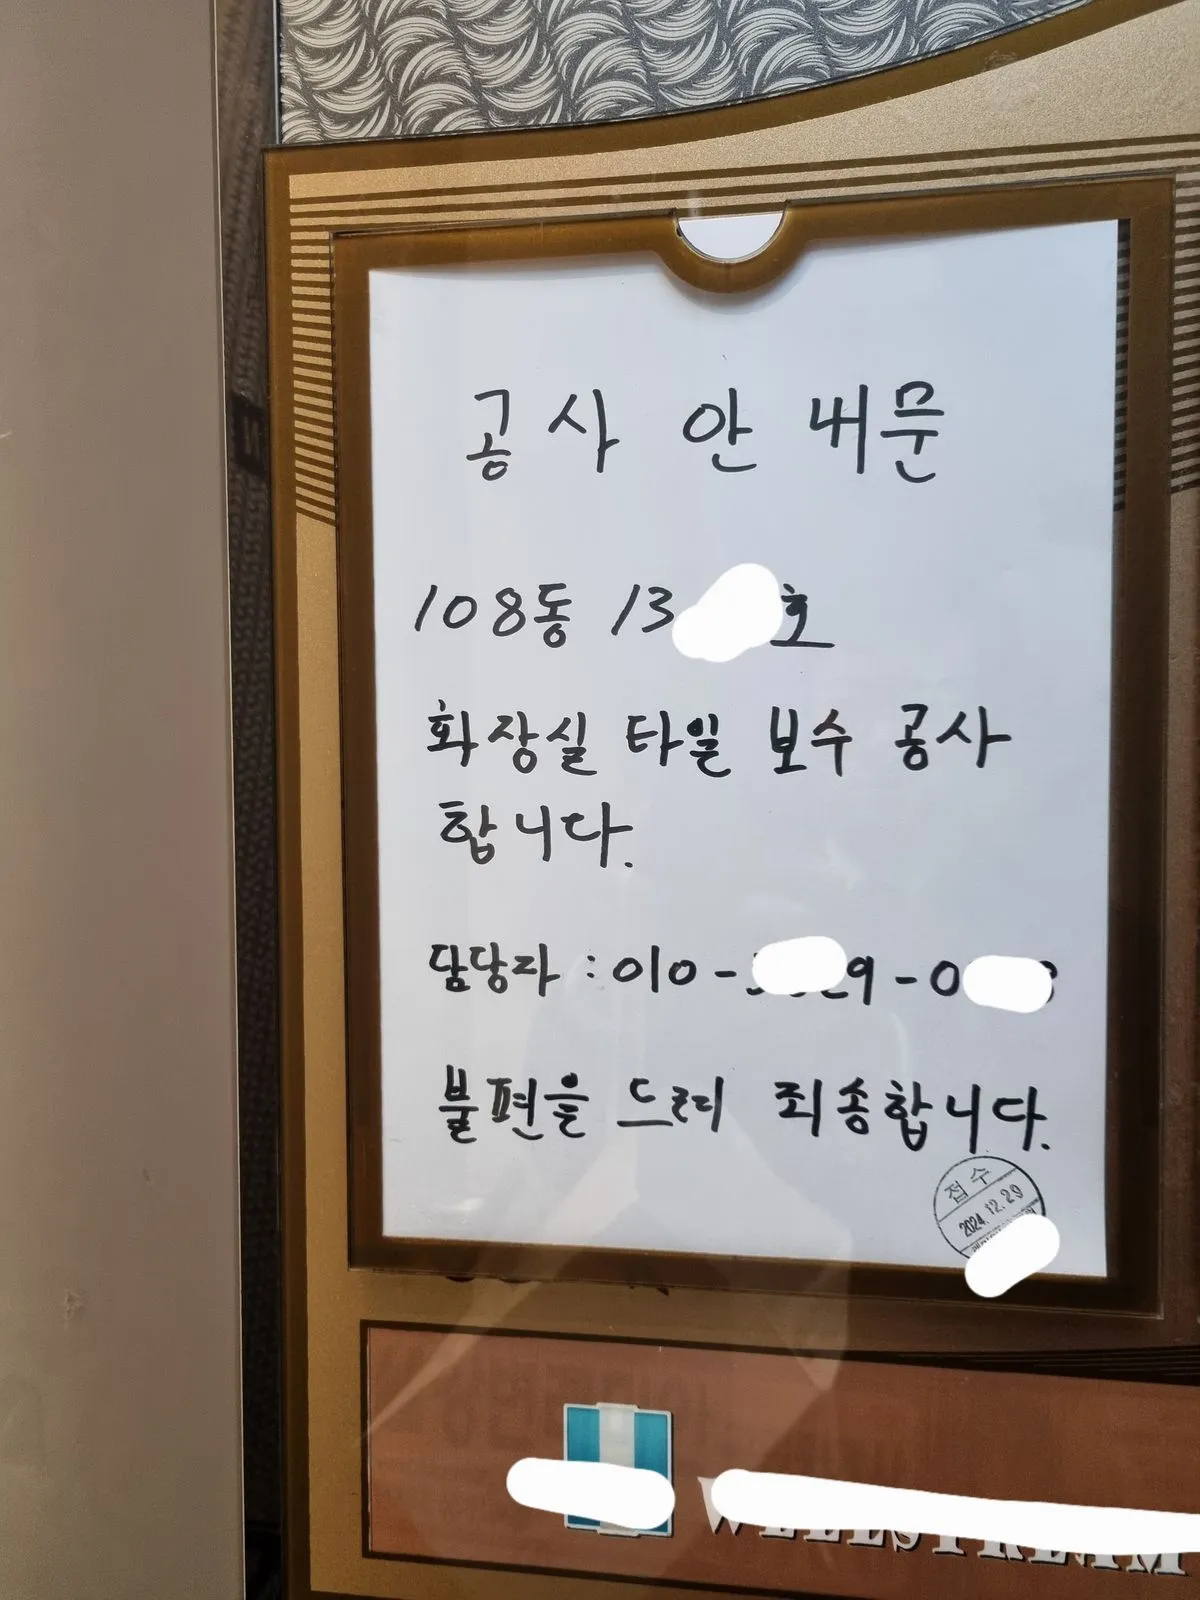 공사 안내문
108동 13 호
화장실 타일 보수 공사
합니다.
담당자 : 010- 9-0
불편을 드려 죄송합니다.
접수
2024.12.29